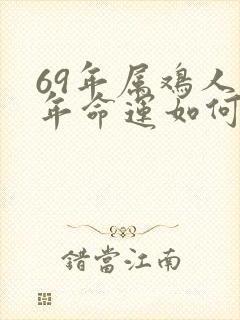 69年属鸡人
年命运如何
錯當江南